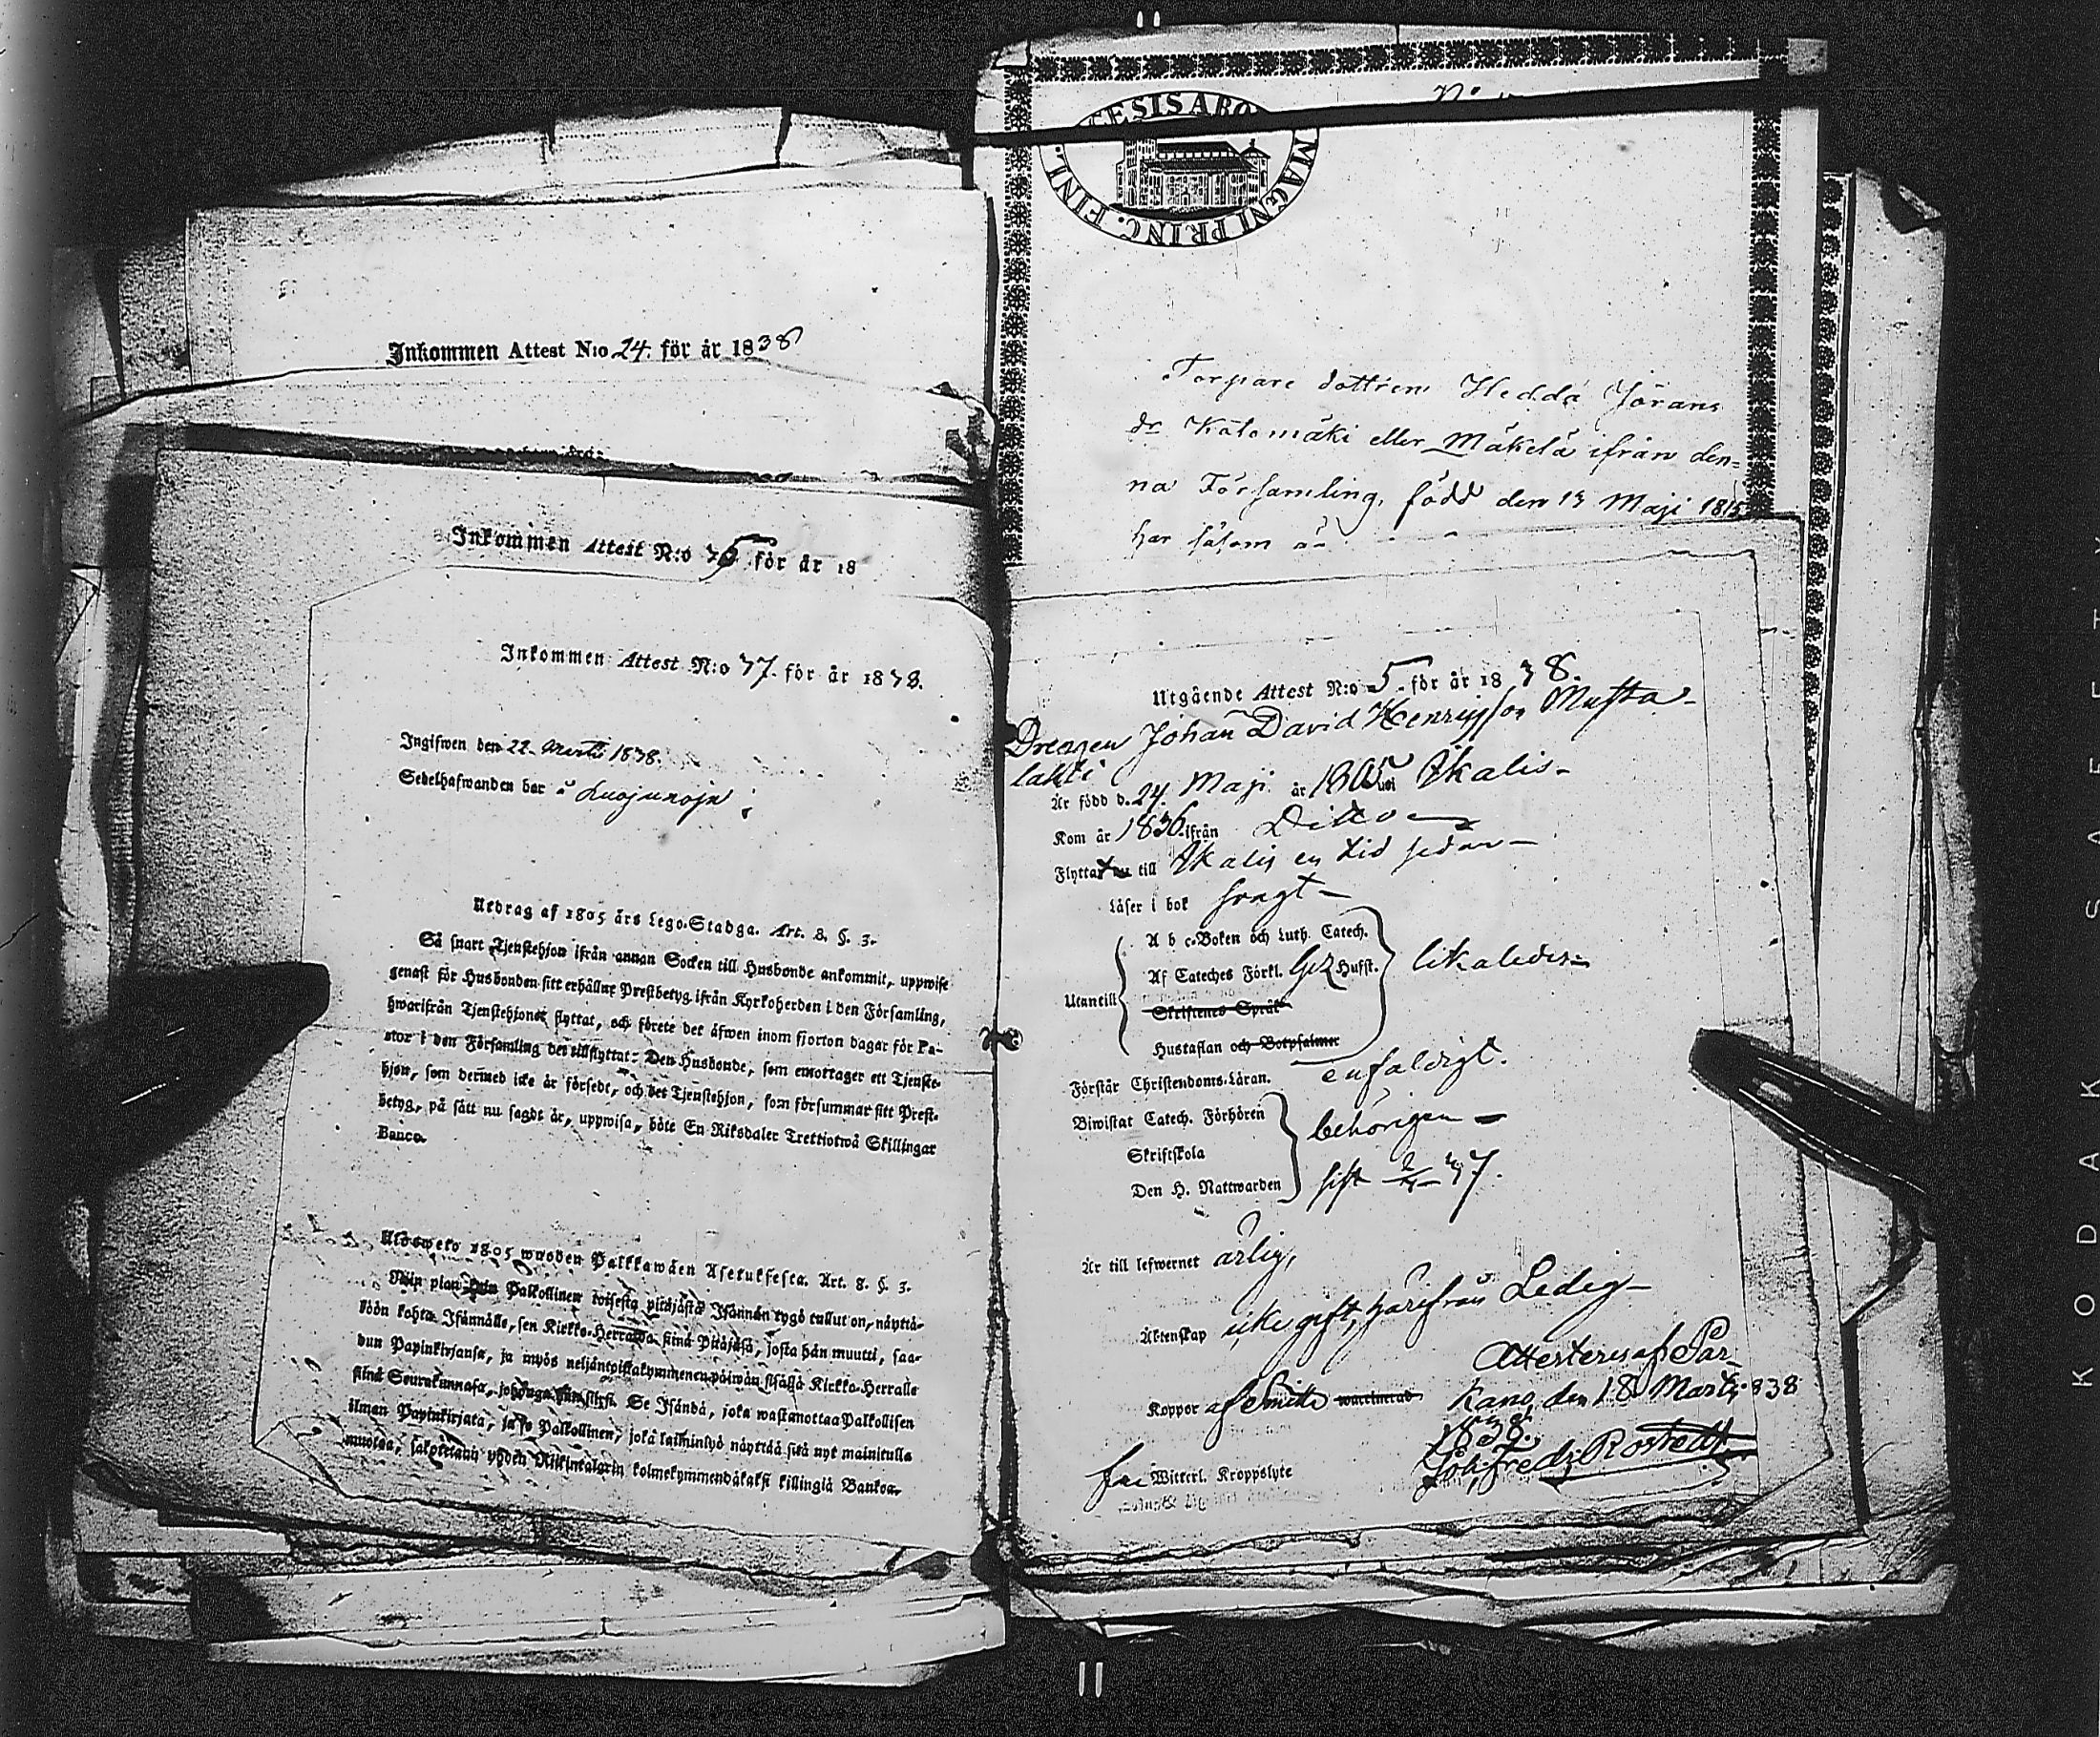 Inkommen Attest N:o 24. för år 1838
Inkommen Attest N:o 76 för år 18
Inkommen Attest N:o 77. för år 1838.
Ingifwen den 22. Martii 1838.
Sedelhafwanden bor å Luojunoja
Utdrag af 1805 års Lego-Stadga. Art. 8. §. 3.
Så snart Tjenstehjon ifrån annan Socken till Husbonde ankommit, uppwise
genast för Husbonden sitt erhållne Prestbetyg ifrån Kyrkoherden i den Församling,
hwarifrån Tjenstehjonet flyttat, och förete det äfwen inom fjorton dagar för Pa-
stor i den Församling det tillflyttat: Den Husbonde, som emottager ett Tjenste-
hjon, som dermed icke är försedt, och det Tjenstehjon, som försummar sitt Prest-
betyg, på sätt nu sagdt är, uppwisa, böte En Riksdaler Trettiotwå Skillingar
Banco.
Uldsweto 1805 wuoden Palkkawäen Asetuksesta. Art. 8. §. 3.
Niin pian kuin Palkollinen toisesta pitäjästä Isännän tygö tullut on, näyttä-
köön kohta Isännälle, sen Kirkko-Herralda siinä Pitäjäsä, josta hän muutti, saa-
dun Papinkirjansa, ja myös neljäntoistakymmenen päiwän sisällä Kirkko-Herralle
siinä Seurakunnasa, johonga hän siirsi. Se Isändä, joka wastanottaa Palkollisen
ilman Papinkirjata, ja se Palkollinen, joka laiminlyö näyttää sitä nyt mainitulla
muotoa, sakotetaan yhden Riikintalarin kolmekymmendäkaksi killingiä Bankoa.
ESIS ABO MAGNI PRINC. FINL.
Torpare dottren Hedda Jörans
dr Katomäki eller Mäkelä ifrån den-
na Församling, född den 13 Maji 1815
har såsom
Utgående Attest N:o 5. för år 1838.
Drengen Johan David Henriksson Musta-
lahti
Är född d. 24. Maji år 1805 uti Ikalis-
Kom år 1836. ifrån Ditto
Flyttat till Ikalis en tid sedan-
Läser i bok svagt-
A b c-Boken och Luth. Catech.
Af Cateches Förkl. Gez Hufst. likaledes-
Utantill
Skriftenes Språk
Hustaflan och Botpsalmer
Förstår Christendoms-Läran. enfaldigt.
Biwistat Catech. Förhören behörigen-
Skriftskola
Den H. Nattwarden sist 37.
Är till lefwernet ärlig,
Äktenskap icke gift, härifrån Ledig-
Attesteras af Par-
Koppor af Smitta waccinerad kano, den 18 Martii 838
1838.
Witterl. Kroppslyte Joh. Fredr. Rostedt
KODAK SAFETY